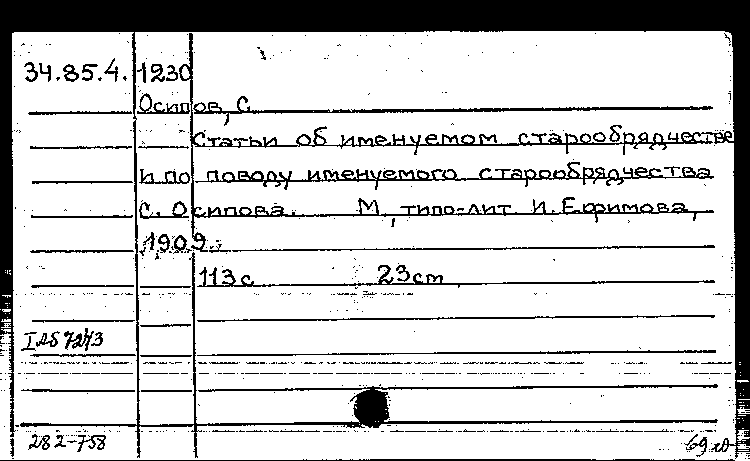 34.85.4. 1230
Осипов, С.
Статьи об именуемом старообрядчестве
и по поводу именуемого старообрядчества
С. Осипова. М., типо-лит И. Ефимова,
1909.
113 с 23 cm
282-758